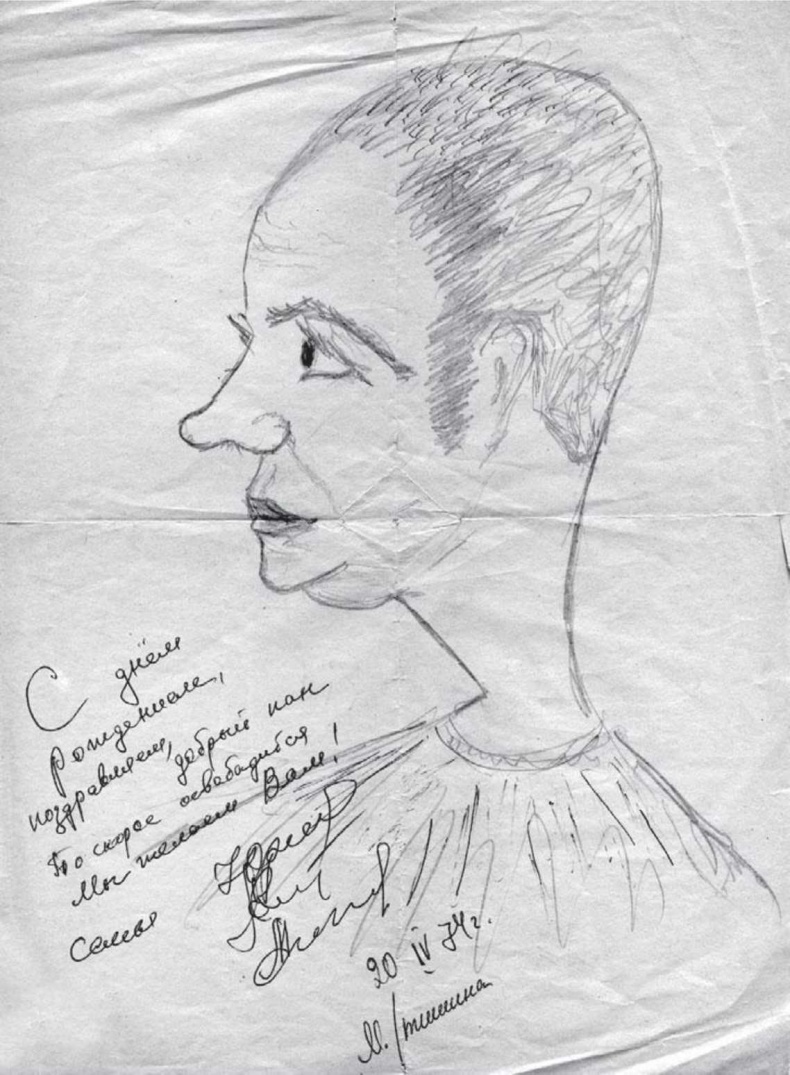 С днём
рождением,
поздравляем, добрый пан
По скорее освободится
Мы желаем Вам!
семья
20 IV 74 г.
М.